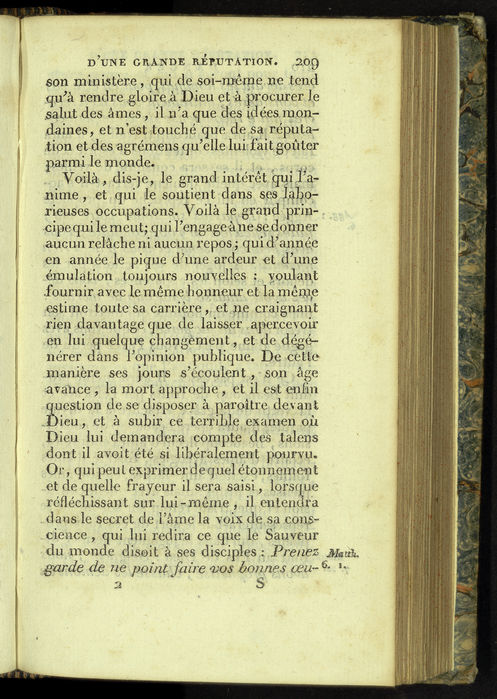 D'UNE GRANDE RÉPUTATION. 209
son ministère, qui de soi-même ne tend
qu'à rendre gloire à Dieu et à procurer le
salut des âmes, il n'a que des idées mon-
daines, et n'est touché que de sa réputa-
tion et des agrémens qu'elle lui fait goûter
parmi le monde.
Voilà, dis-je, le grand intérêt qui l'a-
nime, et qui le soutient dans ses labo-
rieuses occupations. Voilà le grand prin-
cipe qui le meut; qui l'engage à ne se donner
aucun relâche ni aucun repos; qui d'année
en année le pique d'une ardeur et d'une
émulation toujours nouvelles : voulant
fournir avec le même honneur et la même
estime toute sa carrière, et ne craignant
rien davantage que de laisser apercevoir
en lui quelque changement, et de dégé-
nérer dans l'opinion publique. De cette
manière ses jours s'écoulent, son âge
avance, la mort approche, et il est enfin
question de se disposer à paroître devant
Dieu, et à subir ce terrible examen où
Dieu lui demandera compte des talens
dont il avoit été si libéralement pourvu.
Or, qui peut exprimer de quel étonnement
et de quelle frayeur il sera saisi, lorsque
réfléchissant sur lui-même, il entendra
dans le secret de l'âme la voix de sa cons-
cience, qui lui redira ce que le Sauveur
du monde disoit à ses disciples : Prenez Matth.
garde de ne point faire vos bonnes œu- 6. 1.
2 S